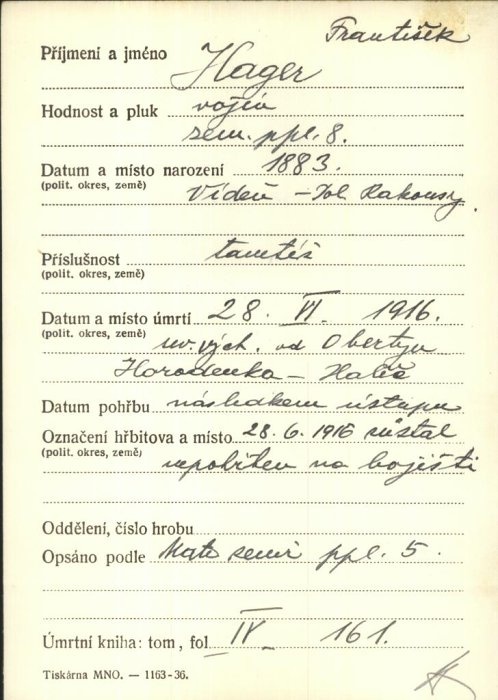 František
Příjmení a jméno Hager
Hodnost a pluk vojín
zem. ppl. 8.
Datum a místo narození 1883.
(polit. okres, země) Vídeň – Dol. Rakousy.
Příslušnost tamtéž
(polit. okres, země)
Datum a místo úmrtí 28. VI 1916.
(polit. okres, země) sv. vých. od Obertyn
Horodenka – Halič
Datum pohřbu následkem ústupu
Označení hřbitova a místo 28. 6. 1916 zůstal
(polit. okres, země) nepohřben na bojišti
Oddělení, číslo hrobu
Opsáno podle ppl. 5.
Úmrtní kniha: tom, fol. IV 161.
Tiskárna MNO. — 1163-36.